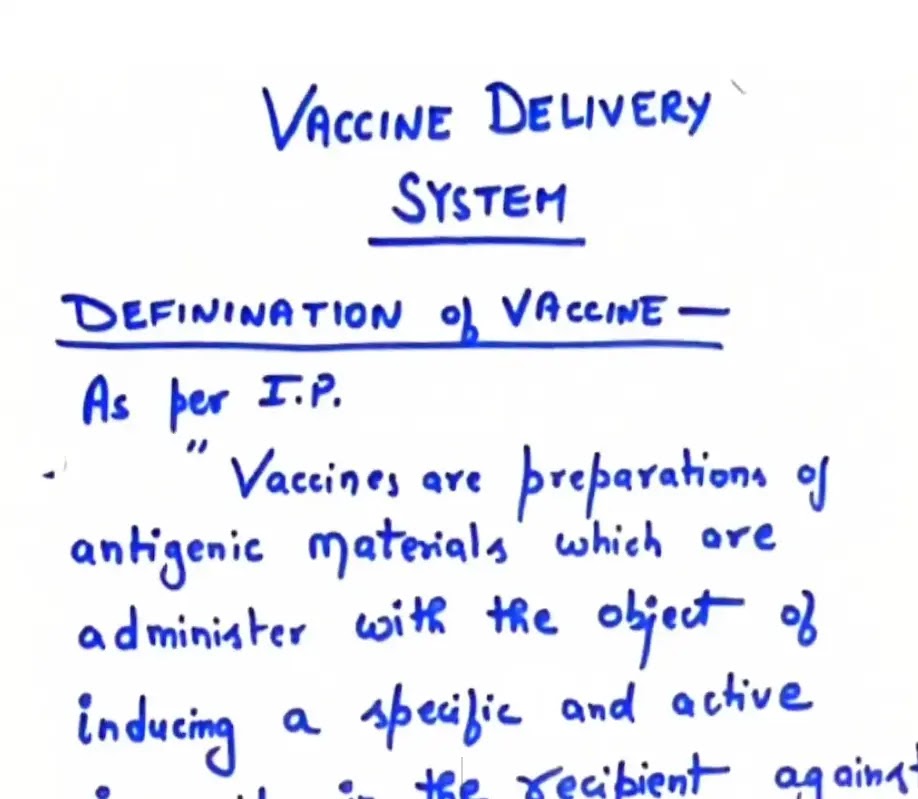 VACCINE DELIVERY
SYSTEM
DEFININATION of VACCINE —
As per I.P.
" Vaccines are preparations of
antigenic materials which are
administer with the object of
inducing a specific and active
in the recipient against